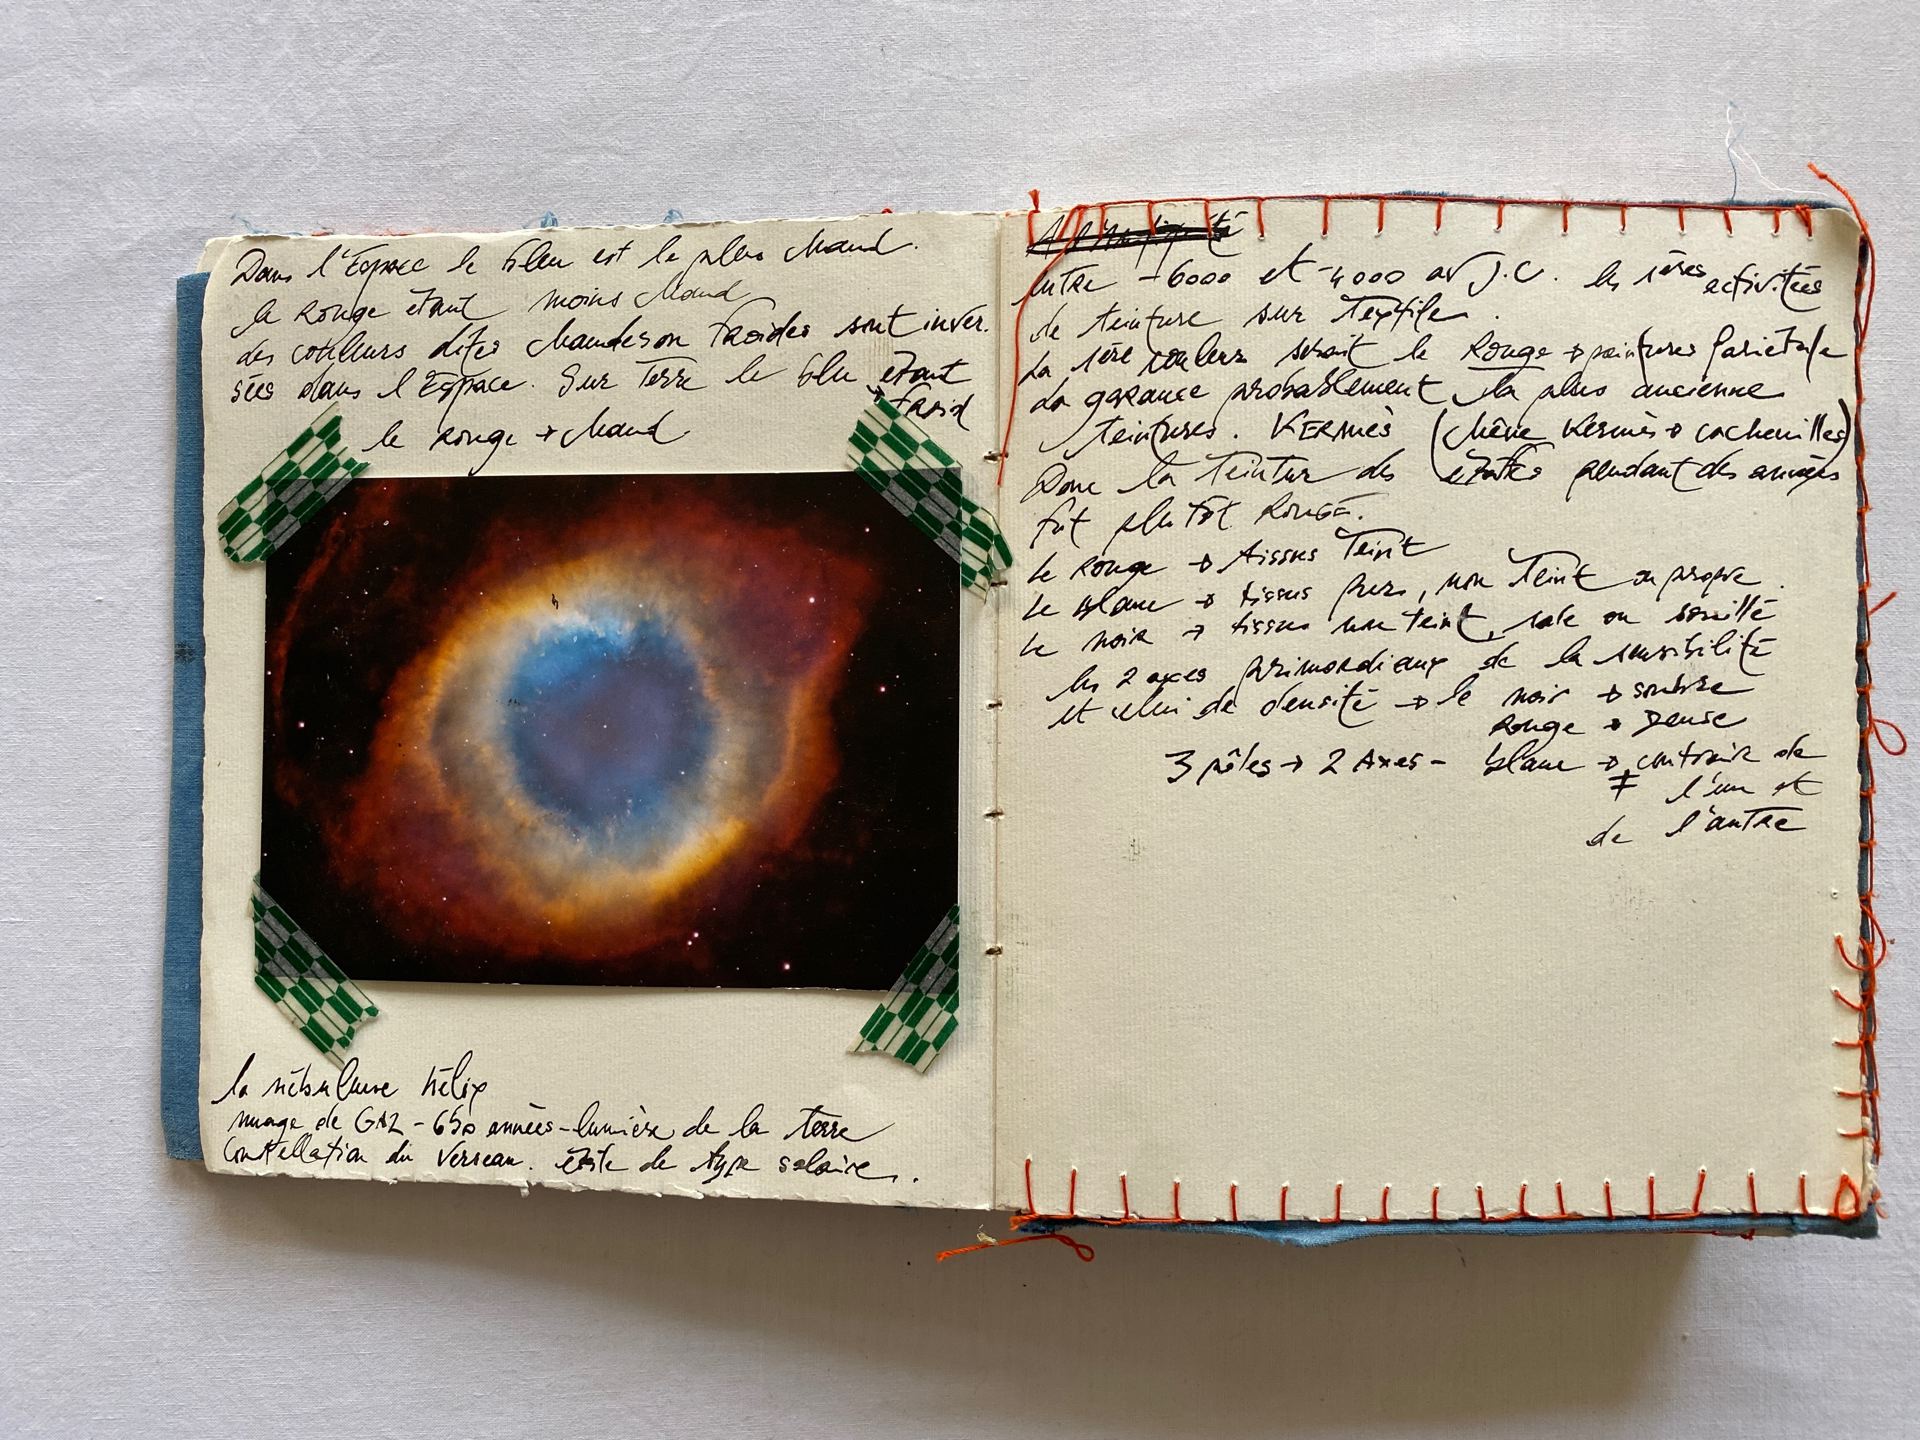 Dans l'Espace le bleu est le plus chaud.
le Rouge étant moins chaud
des couleurs dites chaudes ou froides sont inver.
sées dans l'Espace. Sur Terre le bleu étant
→ froid
le rouge → chaud.
la nébuleuse hélix
nuage de GAZ - 650 années-lumière de la terre
Constellation du Verseau. étoile de type solaire.
A l'Antiquité
entre -6000 et -4000 av J.C. les 1ères activitées
de teinture sur Textile.
La 1ère couleur serait le Rouge → peintures pariétale
La garance probablement la plus ancienne
teintures. KERMès (chêne Kermès → cochenilles)
Donc la Teintur des étoffes pendant des années
fut plutôt Rouge.
Le Rouge → tissus Teint
Le blanc → tissus purs, non Teint ou propre.
Le noir → tissus non teint, sale ou souillé
les 2 axes primordiaux de la sensibilité
et celui de densité → le noir → sombre
Rouge → Dense
3 pôles → 2 Axes - blanc → contraire de
≠ l'un et
de l'autre